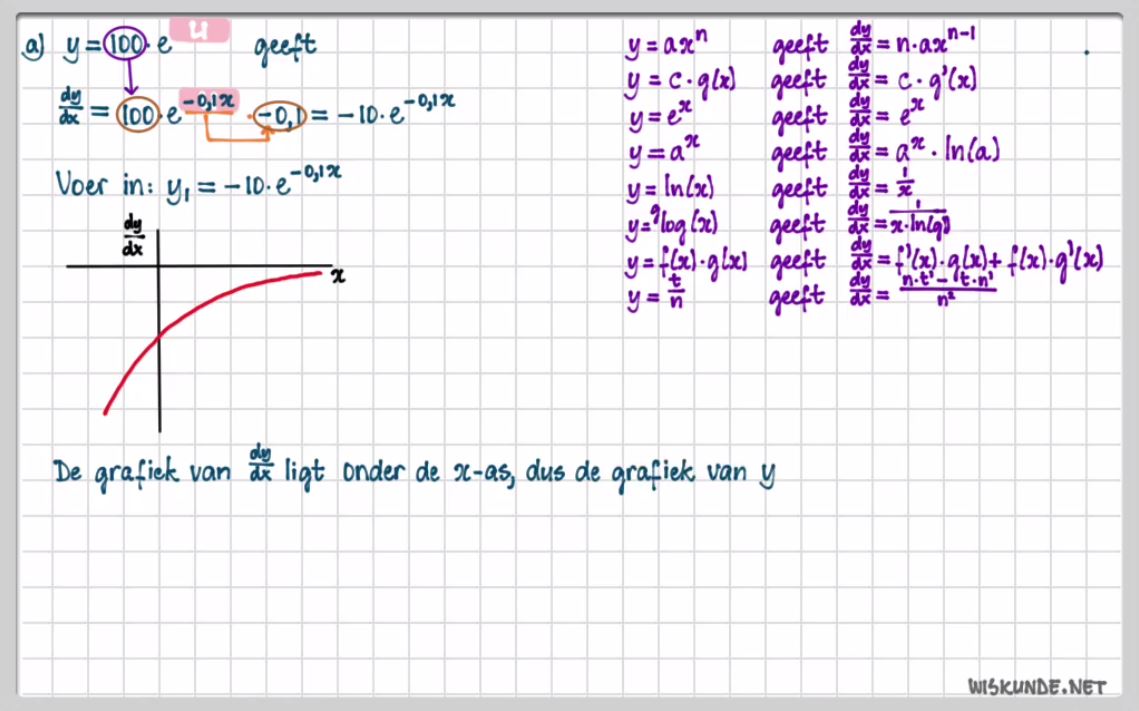 a) y = 100 · e^u geeft
dy/dx = 100 · e^(-0,1x) · -0,1 = -10 · e^(-0,1x)
Voer in: y₁ = -10 · e^(-0,1x)
dy/dx
x
De grafiek van dy/dx ligt onder de x-as, dus de grafiek van y
y = ax^n geeft dy/dx = n · ax^(n-1)
y = c · g(x) geeft dy/dx = c · g'(x)
y = e^x geeft dy/dx = e^x
y = a^x geeft dy/dx = a^x · ln(a)
y = ln(x) geeft dy/dx = 1/x
y = ᵍlog(x) geeft dy/dx = 1/(x · ln(g))
y = f(x) · g(x) geeft dy/dx = f'(x) · g(x) + f(x) · g'(x)
y = t/n geeft dy/dx = (n · t' - t · n')/n²
WISKUNDE.NET